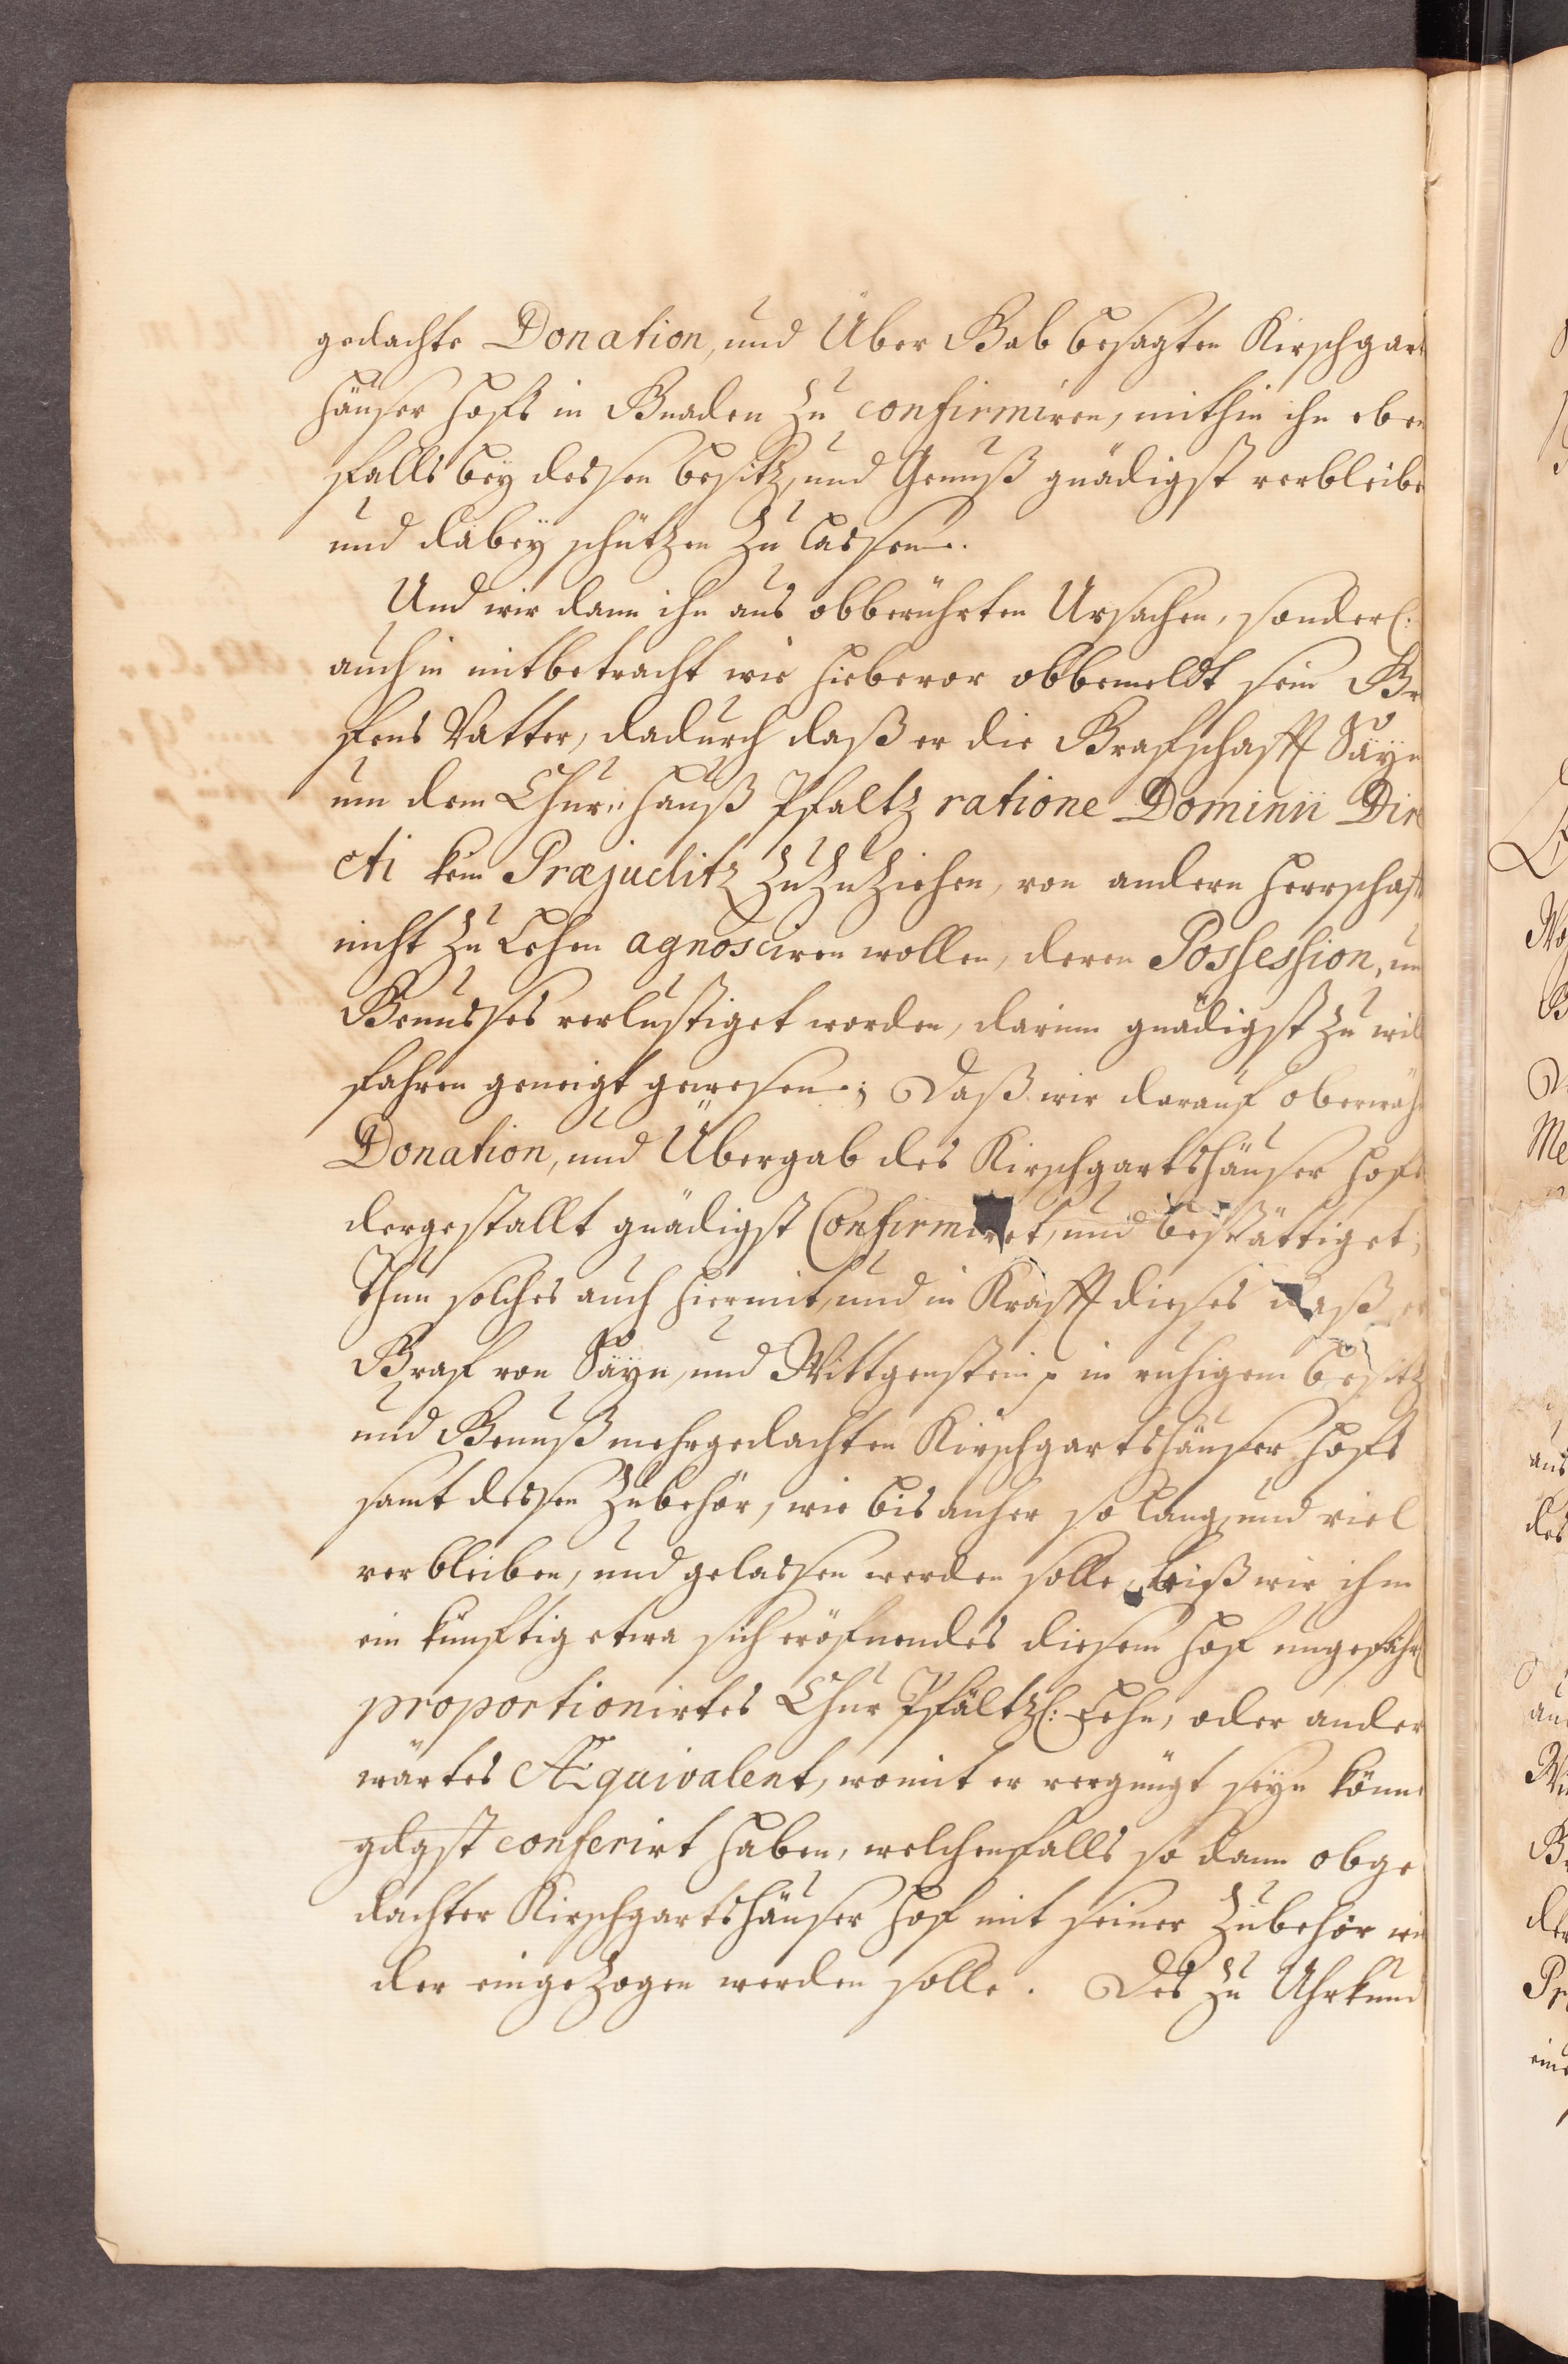 gedachte Donation, und Über Gab besagten Kirschgar
häuser Hofs in Gnaden zu confirmiren, mithin ihn eben
falls bey dessen besitz, und Genuß gnädigst verbleibe
und dabey schützen zu lassen.
Und wir dann ihn aus obberührten Ursachen, sonderl:
auch in mitbetracht wie hiebevor obbemeldt sein Gr
fens Vatter, dadurch daß er die Grafschafft Säyn
um dem Chur-Hauß Pfaltz ratione Dominii Dire
cti kein Præjuditz zuzuziehen, von andern Herrschaft
nicht zu Lehen agnosciren wollen, deren Possession, un
Genusses verlustiget worden, darinn gnädigst zu wil
fahren geneigt gewesen; Daß wir darauf oberwäh
Donation, und Übergab des Kirschgartshäuser Hofs
dergestallt gnädigst Confirmiret, und bestättiget,
Thun solches auch hiermit, und in Krafft dieses daß er
Graf von Säyn, und Wittgenstein in ruhigem besitz
und Genuß mehrgedachten Kirschgartshäuser Hofs
samt dessen Zubehör, wie bis anher so lang, und viel
verbleiben, und gelassen werden solle, biß wir ihm
ein künftig etwa sich eröfnendes diesem Hof ungefähr
proportionirtes Chur Pfältzl: Lehn, oder ander
wärtes Æquivalent, womit er vergnügt seyn könne
gdgst conferirt haben, welchenfalls so dann obge
dachter Kirschgartshäuser Hof mit seiner Zubehör wie
der eingezogen werden solle. Des zu Uhrkund